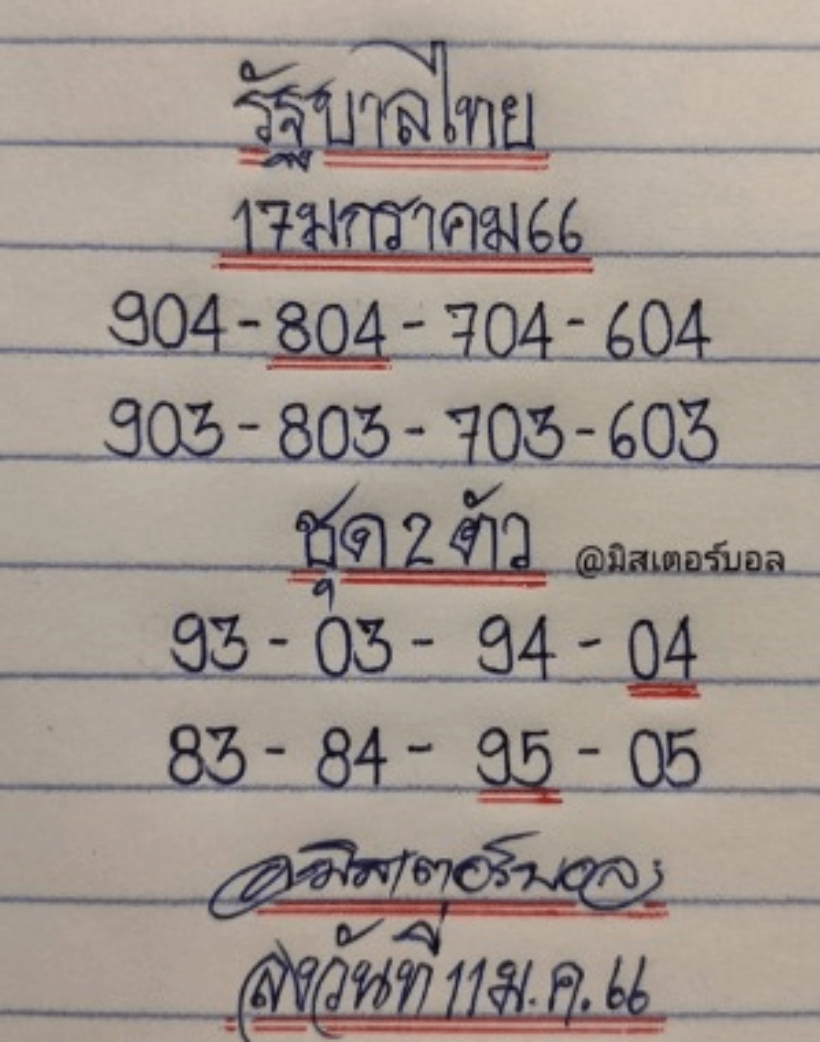 รัฐบาลไทย
17มกราคม66
904-804-704-604
903-803-703-603
ชุด 2 ตัว
@มิสเตอร์บอล
93-03-94-04
83-84-95-05
@มิสเตอร์บอล
ลงวันที่ 11 ม.ค. 66